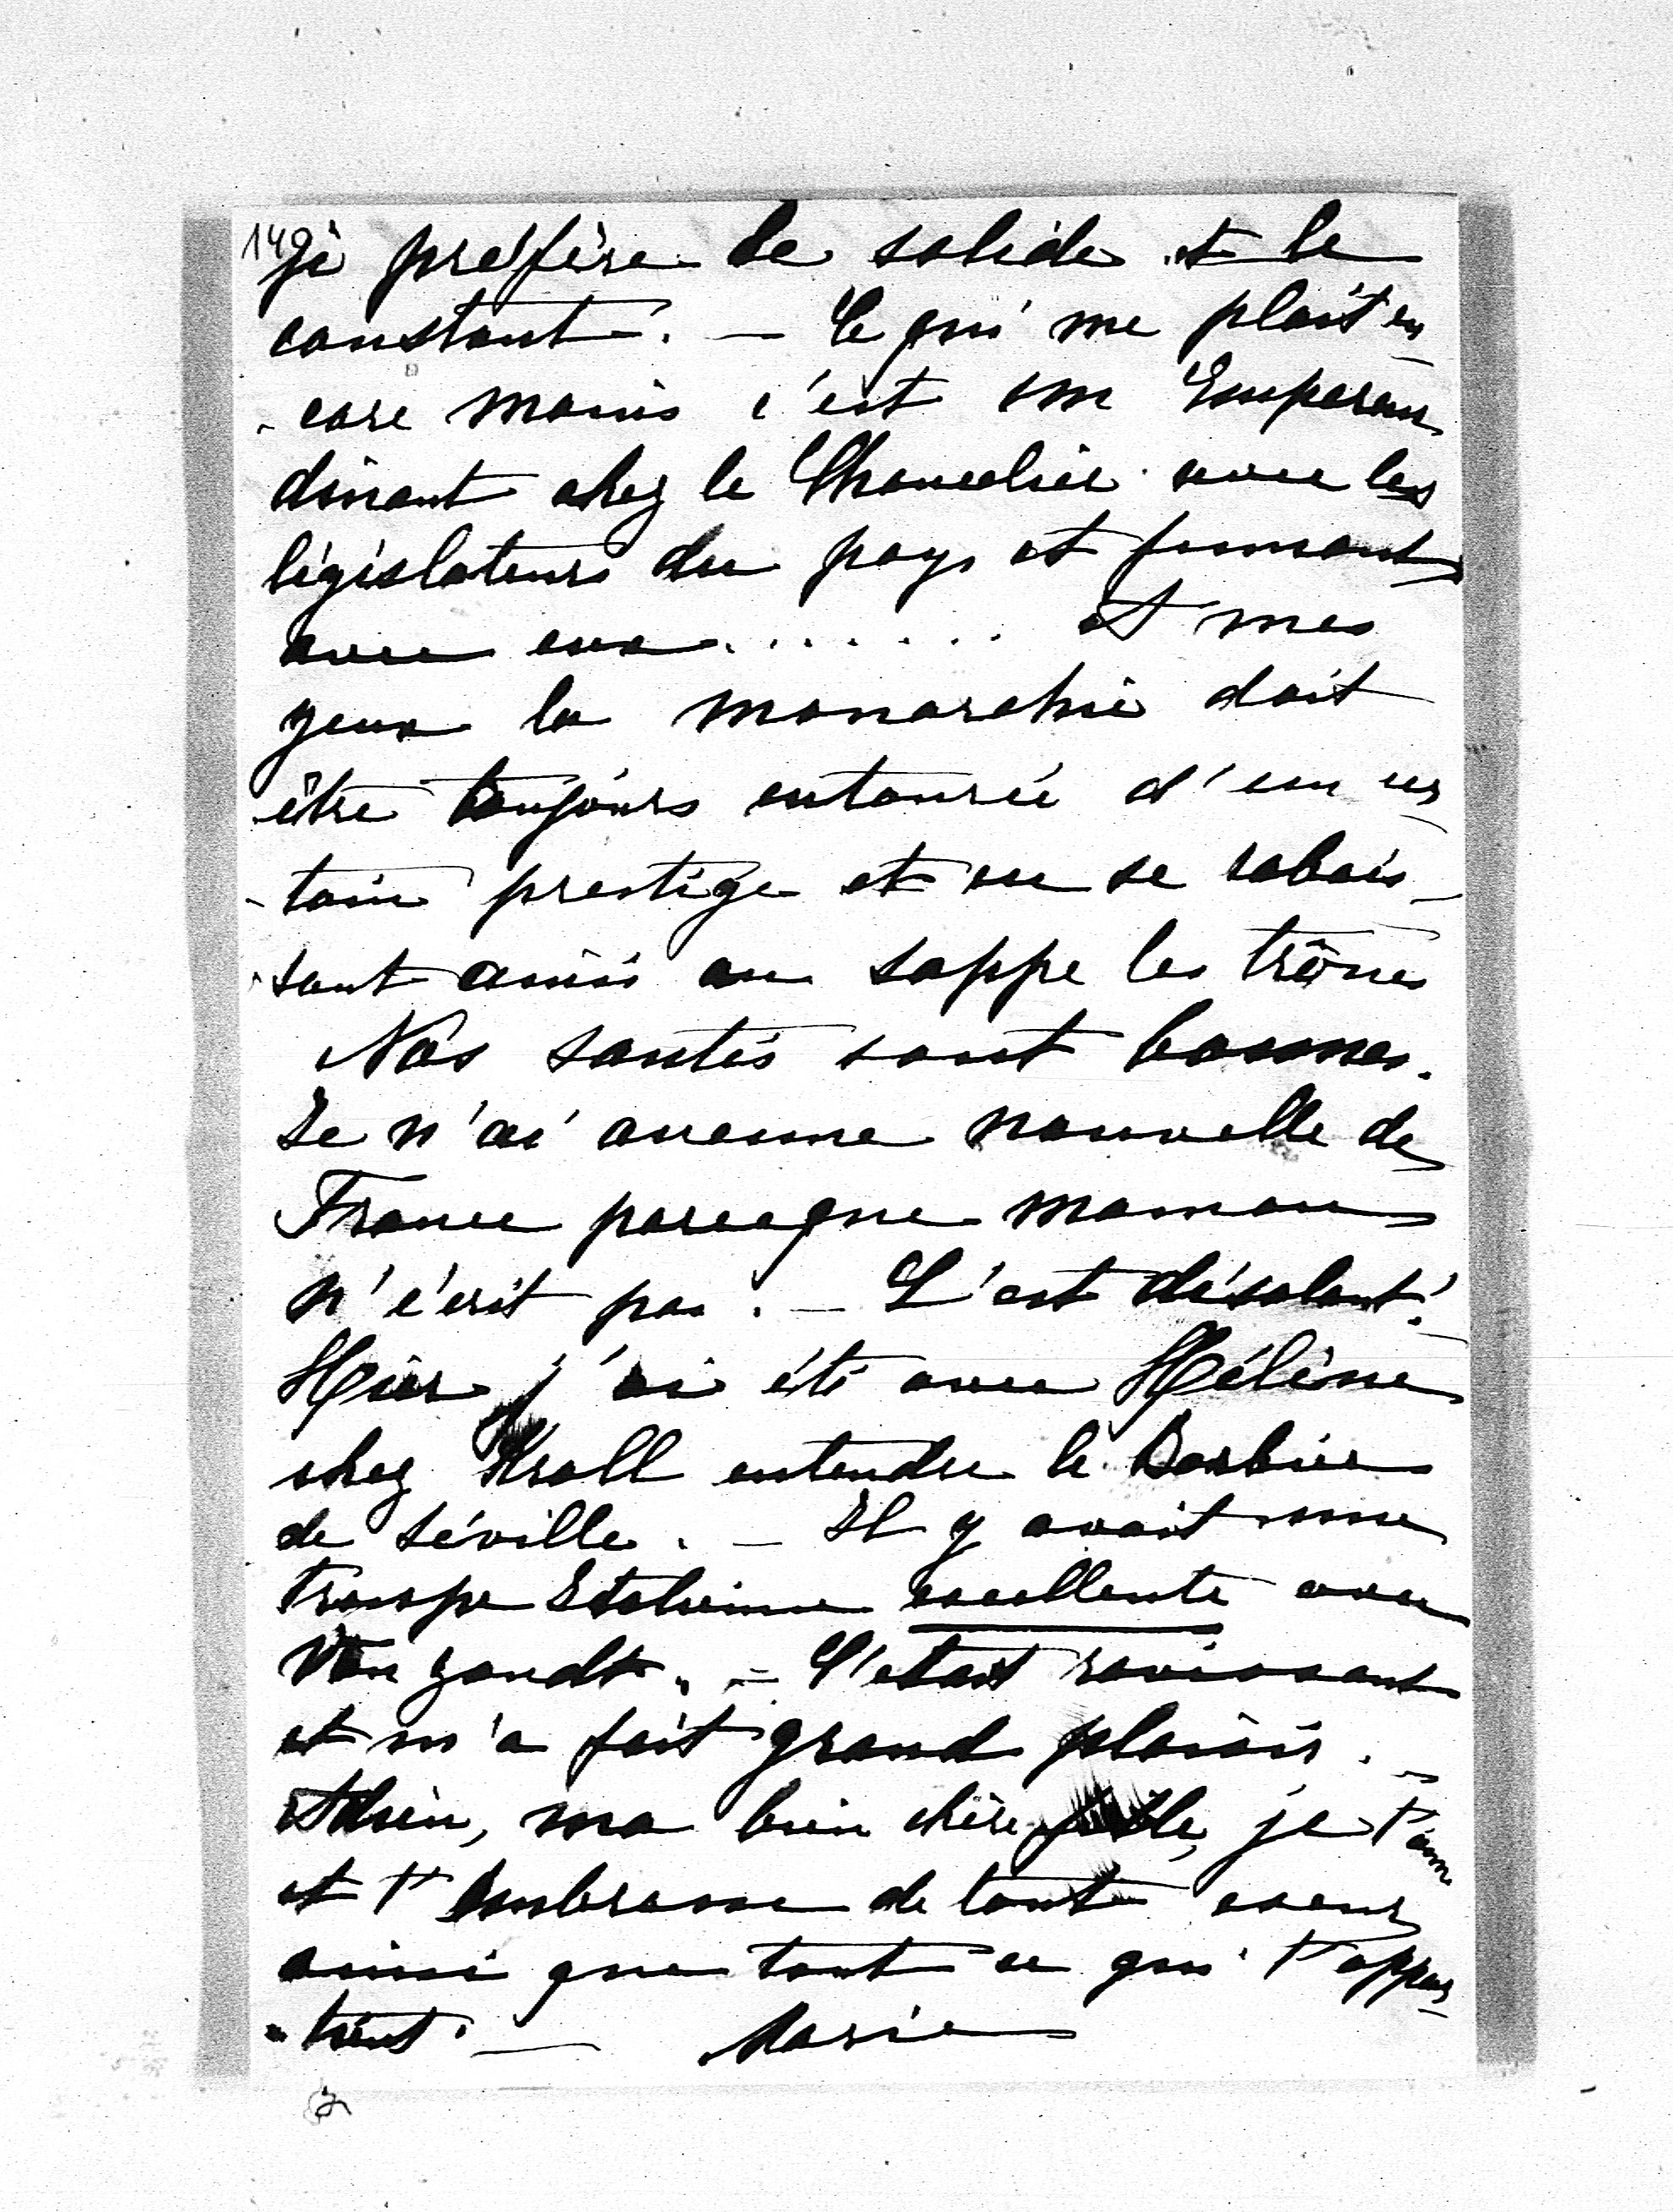 149
je préfère le solide et le
constant. — Ce qui me plaît en
-core moins c'est un Empereur
dînant chez le Chancelier avec les
législateurs du pays et fumant
avec eux ....... A mes
yeux la monarchie doit
être toujours entourée d'un cer
-tain prestige et en se rabais-
-sant ainsi on sappe les trônes
Nos santés sont bonnes.
Je n'ai aucune nouvelle de
France parceque maman
n'écrit pas. — C'est désolant!
Hier j'ai été avec Hélène
chez Kroll entendre le Barbier
de Séville. — Il y avait une
troupe Italienne excellente avec
Van Zandt. — C'etait ravissant
et m'a fait grand plaisir. —
Adieu, ma bien chère fille, je t'aime
et t'embrasse de tout coeur
ainsi que tout ce qui t'appar-
-tient. — Marie